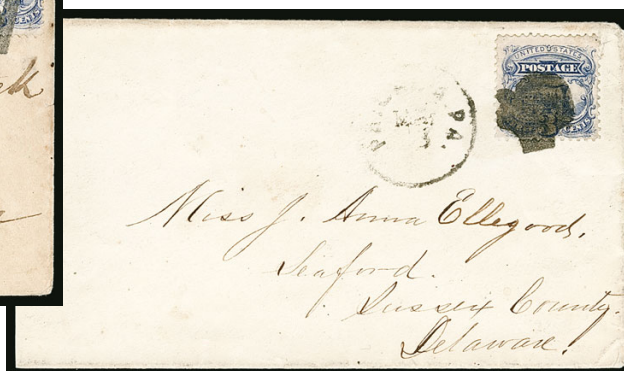 UNITED STATES
POSTAGE
PA.
Miss J. Anna Ellegood,
Seaford.
Sussex County.
Delaware.